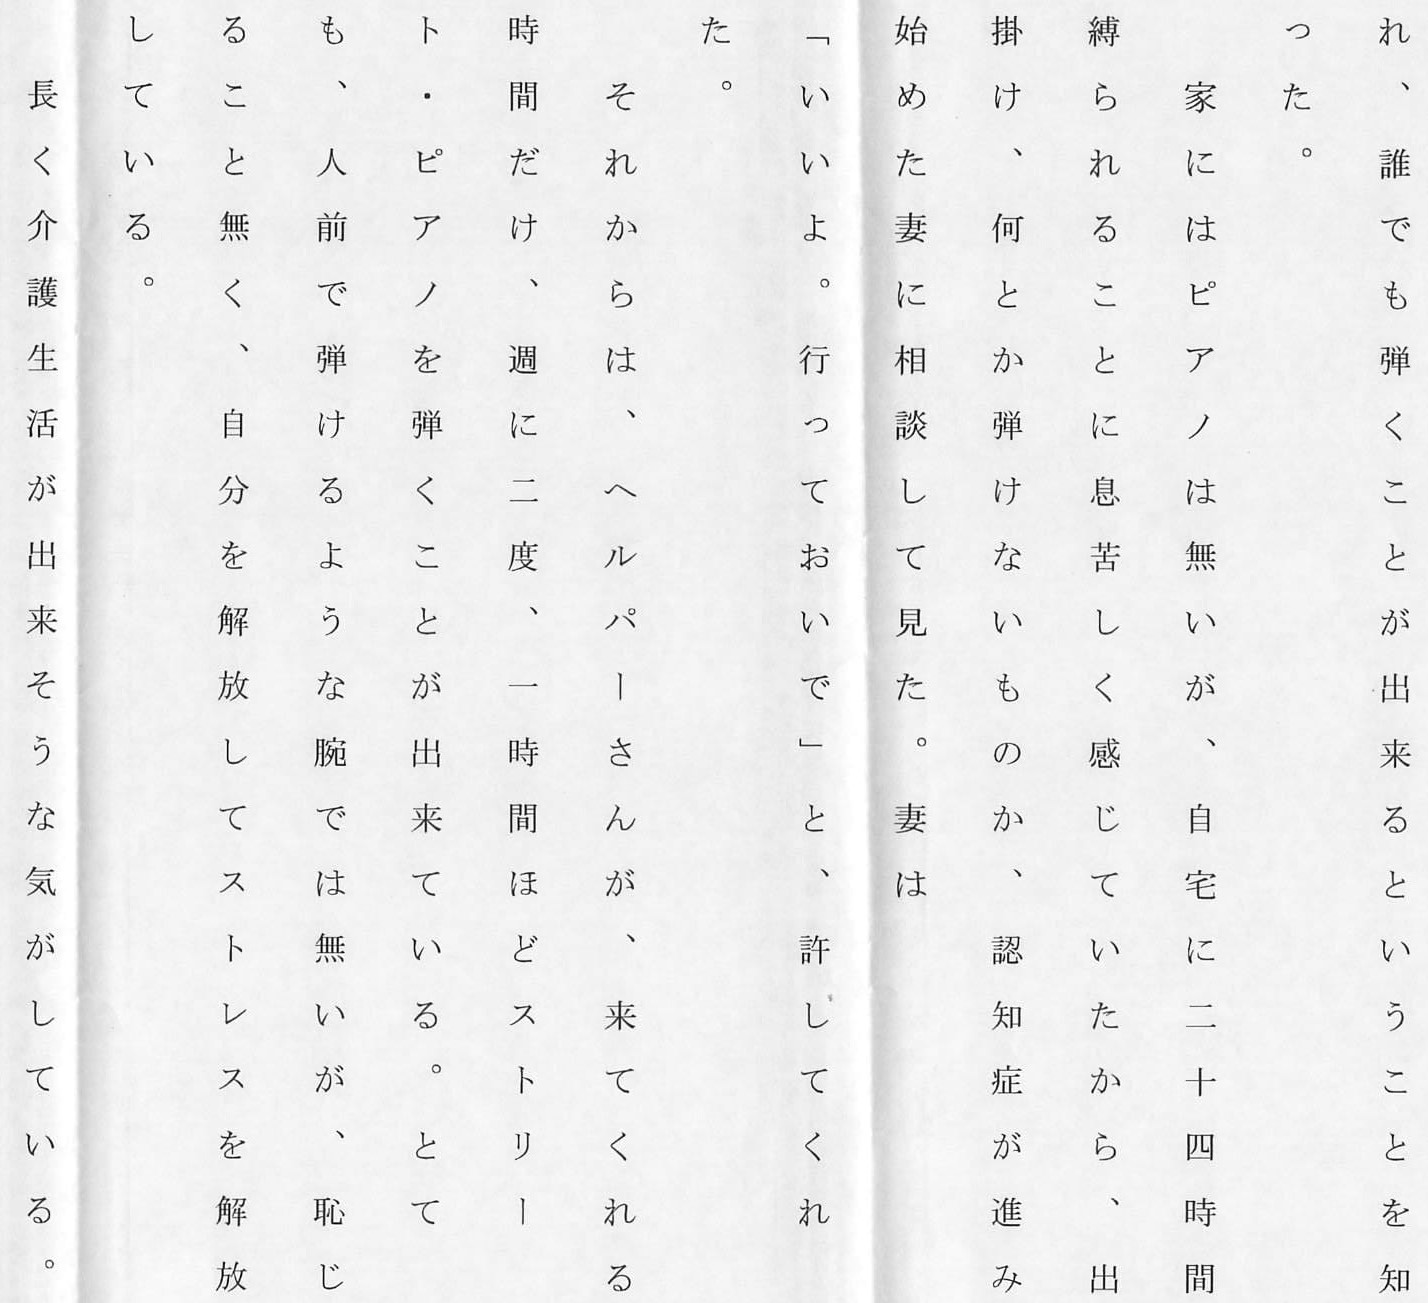 れ、誰でも弾くことが出来るということを知
った。
　家にはピアノは無いが、自宅に二十四時間
縛られることに息苦しく感じていたから、出
掛け、何とか弾けないものか、認知症が進み
始めた妻に相談して見た。妻は
「いいよ。行っておいで」と、許してくれ
た。
　それからは、ヘルパーさんが、来てくれる
時間だけ、週に二度、一時間ほどストリー
ト・ピアノを弾くことが出来ている。とて
も、人前で弾けるような腕では無いが、恥じ
ること無く、自分を解放してストレスを解放
している。
　長く介護生活が出来そうな気がしている。